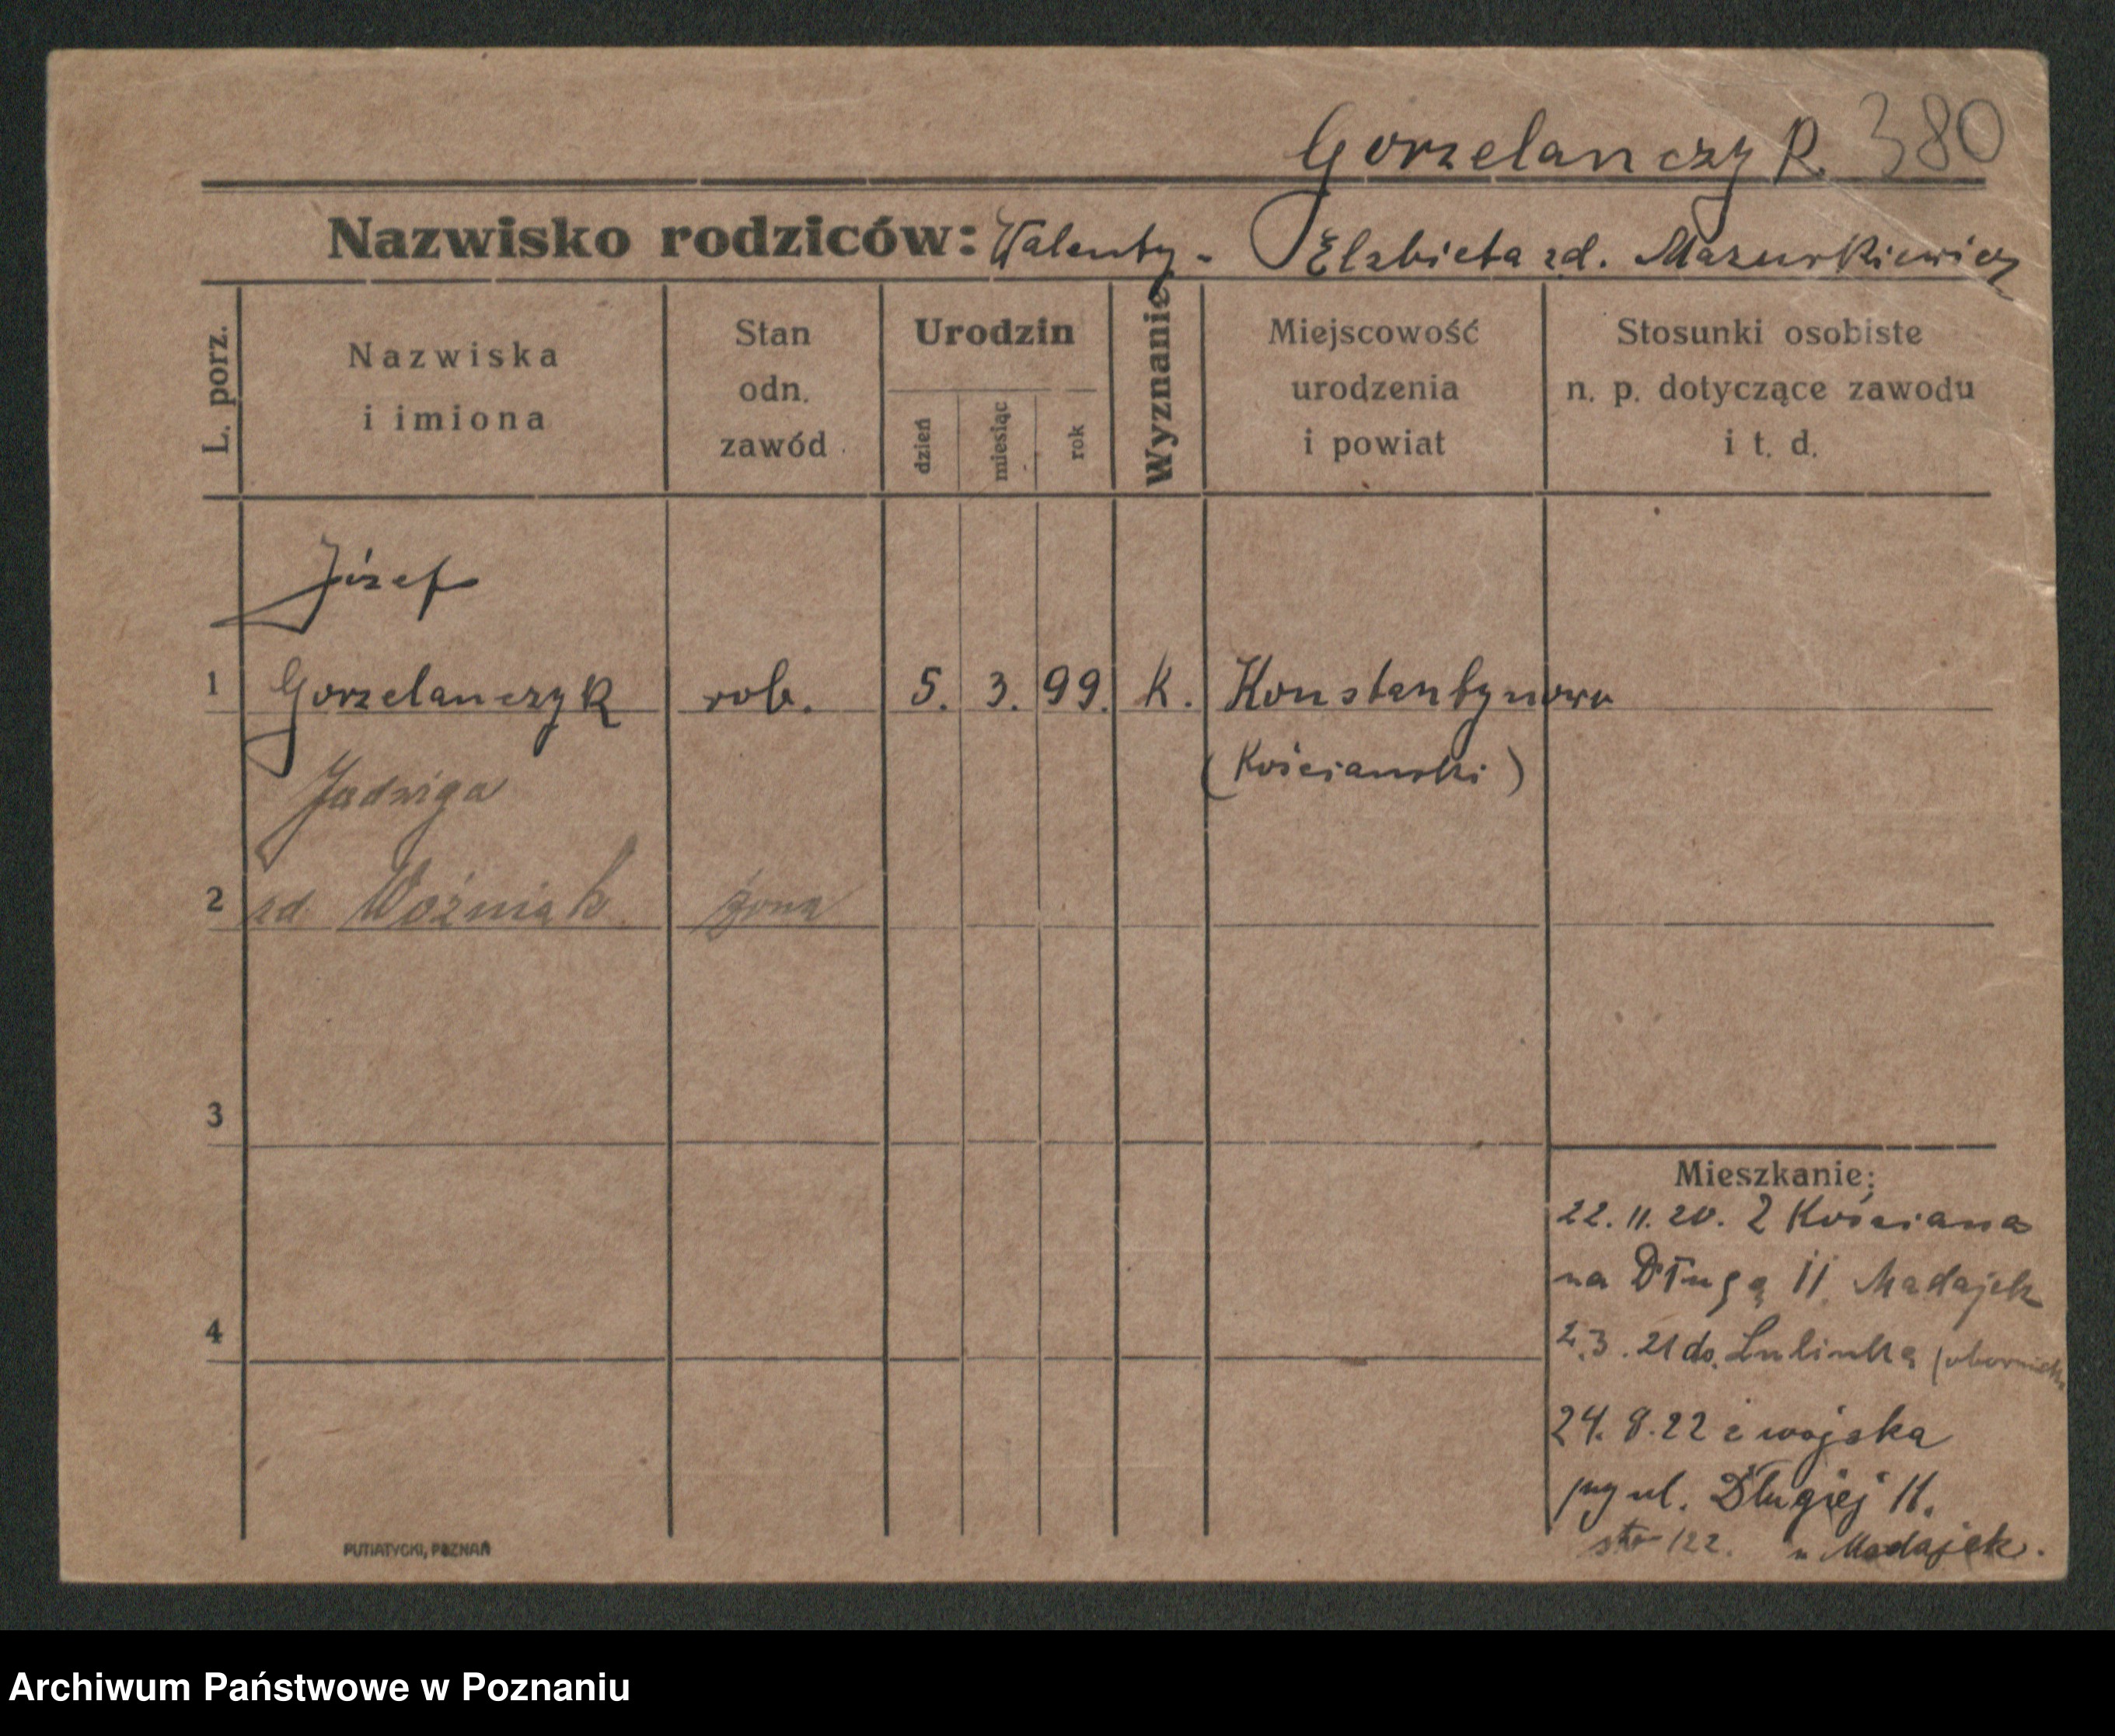 Gorzelanczyk. 380
Nazwisko rodziców: Walenty - Elzbieta zd. Mazurkiewicz
L. porz.
Nazwiska
i imiona
Stan
odn.
zawód
Urodzin
dzień
miesiąc
rok
Wyznanie
Miejscowość
urodzenia
i powiat
Stosunki osobiste
n. p. dotyczące zawodu
i t. d.
Józef
1 Gorzelanczyk rob. 5. 3. 99. K. Konstantynowo
(Kościański)
Jadwiga
2 zd Woźniak żona
3
Mieszkanie:
22. 11. 20. Z Kościana
na Długą 11 Madajek
4
2. 3. 21 do
24. 8. 22 z wojska
przy ul. Długiej 11.
122. u Madajek.
PUTIATYCKI, POZNAŃ
Archiwum Państwowe w Poznaniu